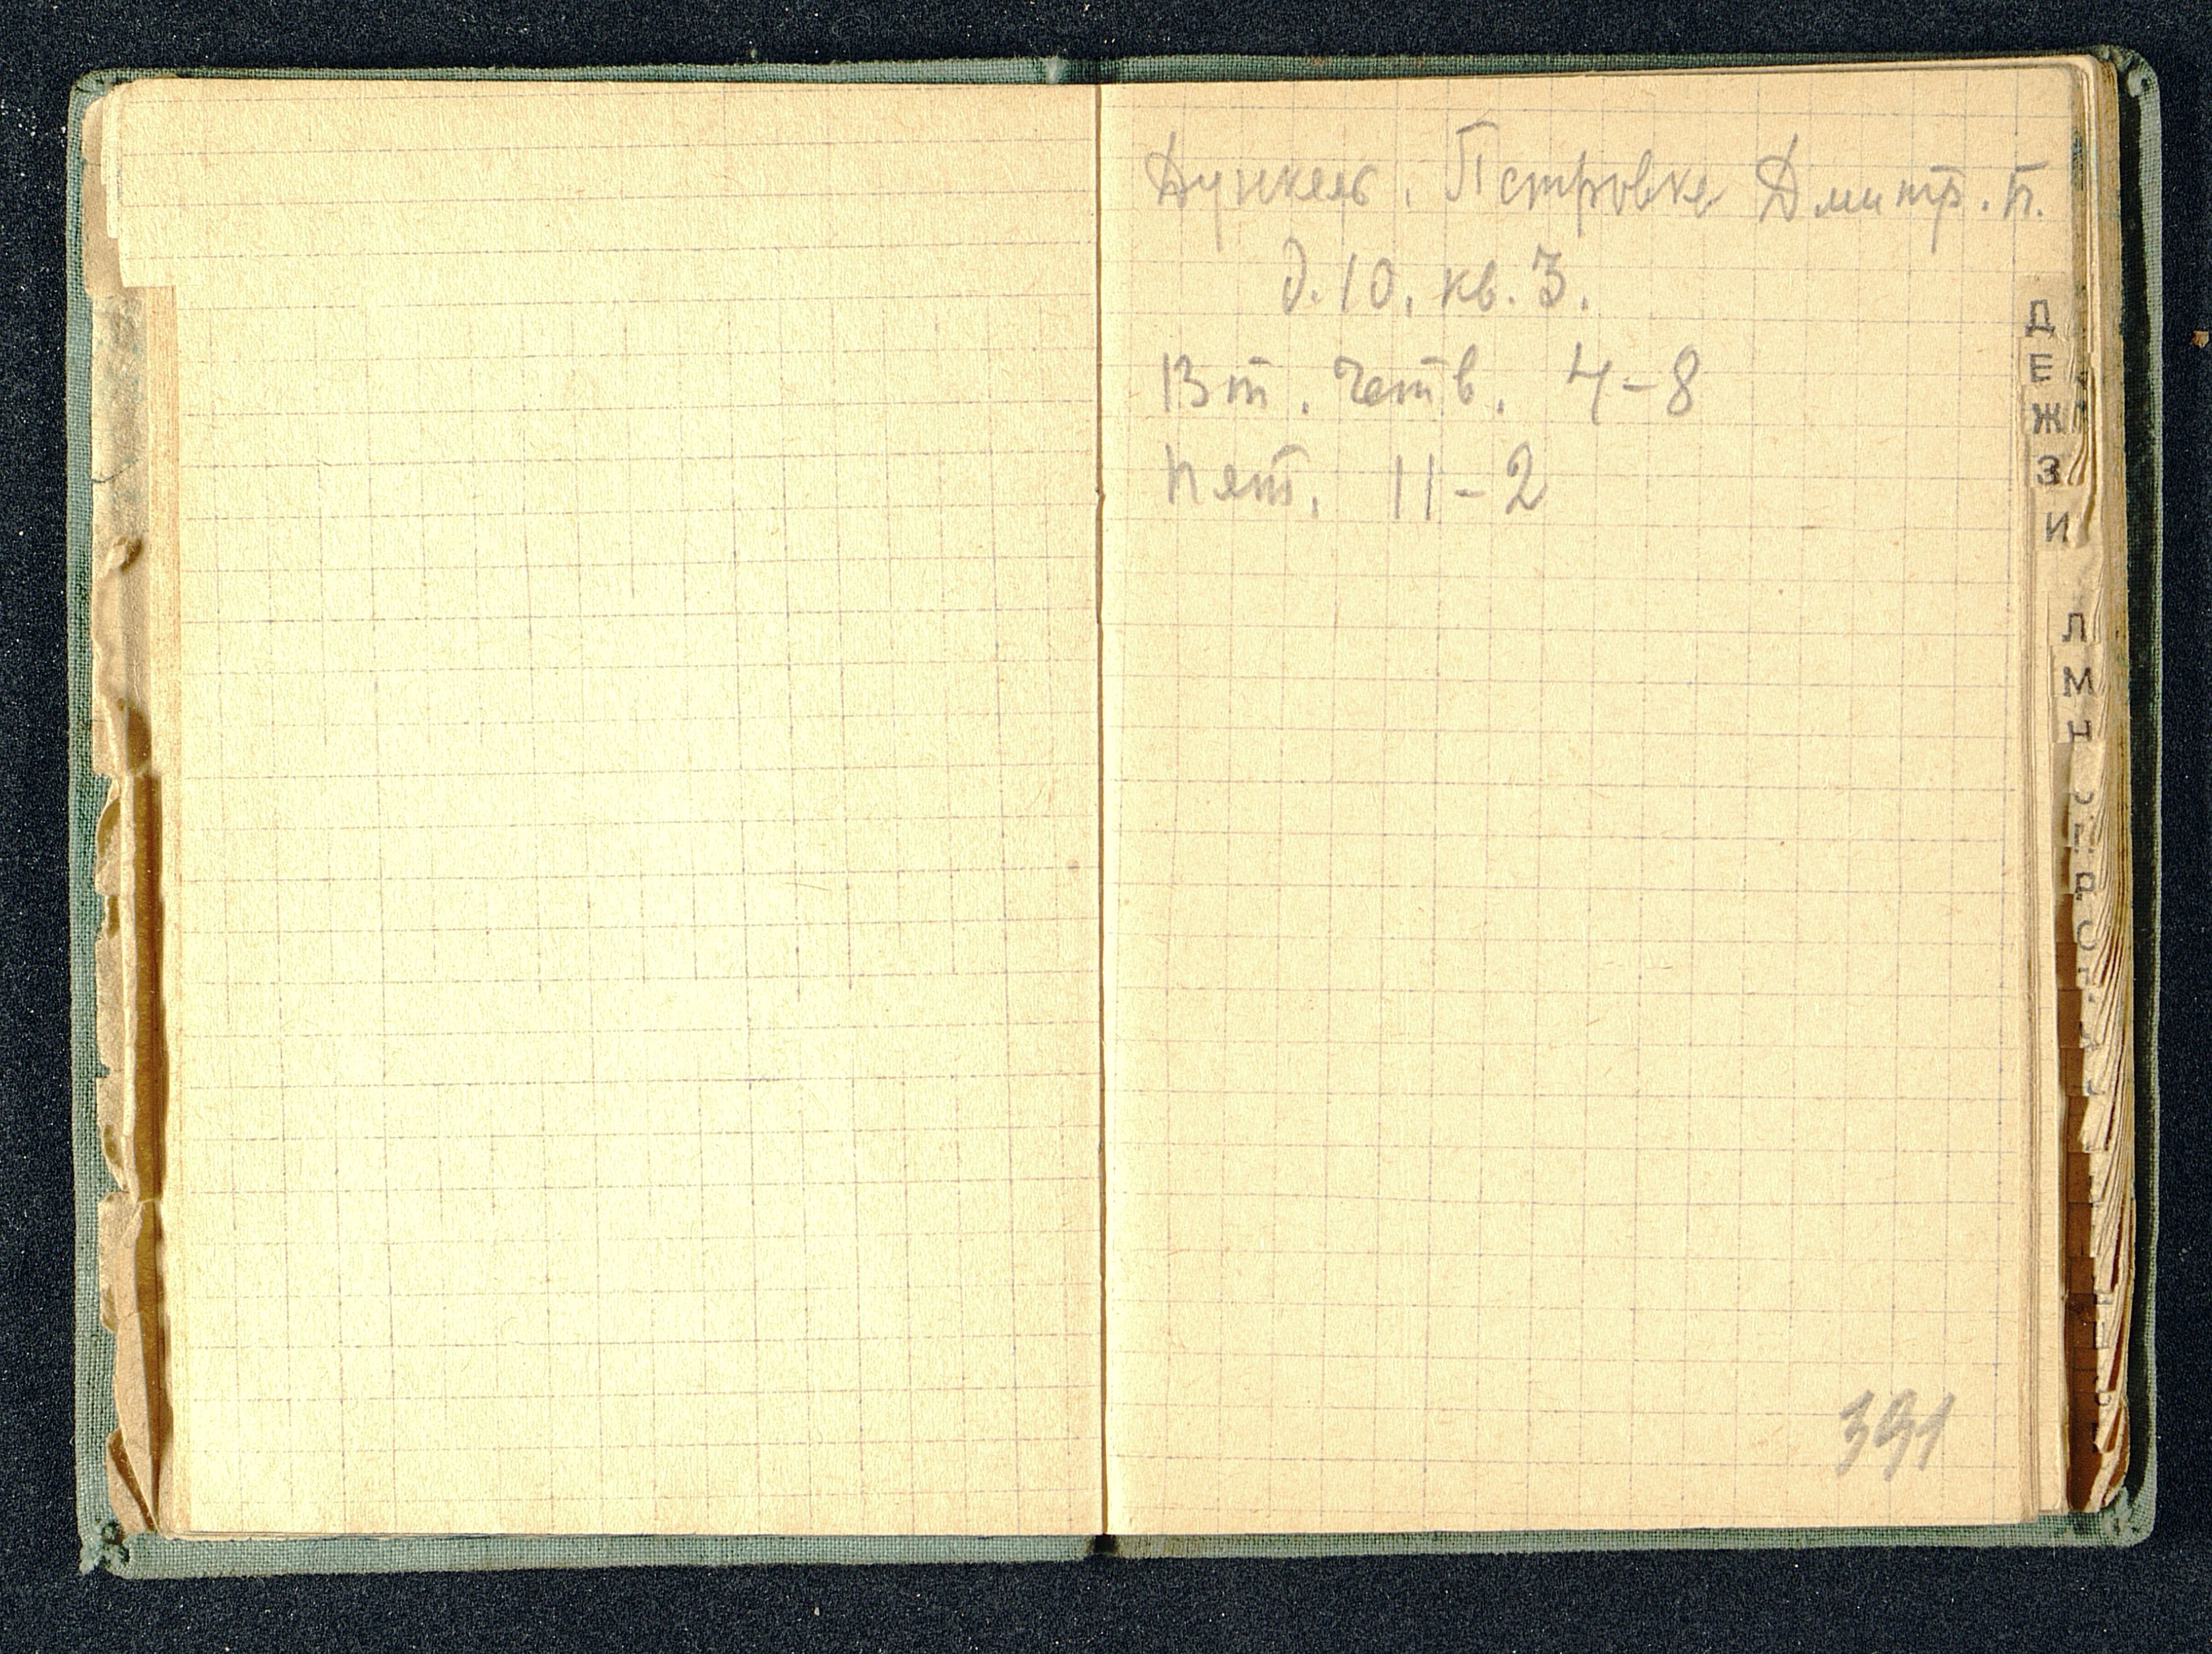 Дункель. Петровка Дмитр. п.
д. 10. кв. 3.
Вт. Четв. 4-8
Пят. 11-2
Д
Е
Ж
З
И
Л
М
Н
Р
О
391